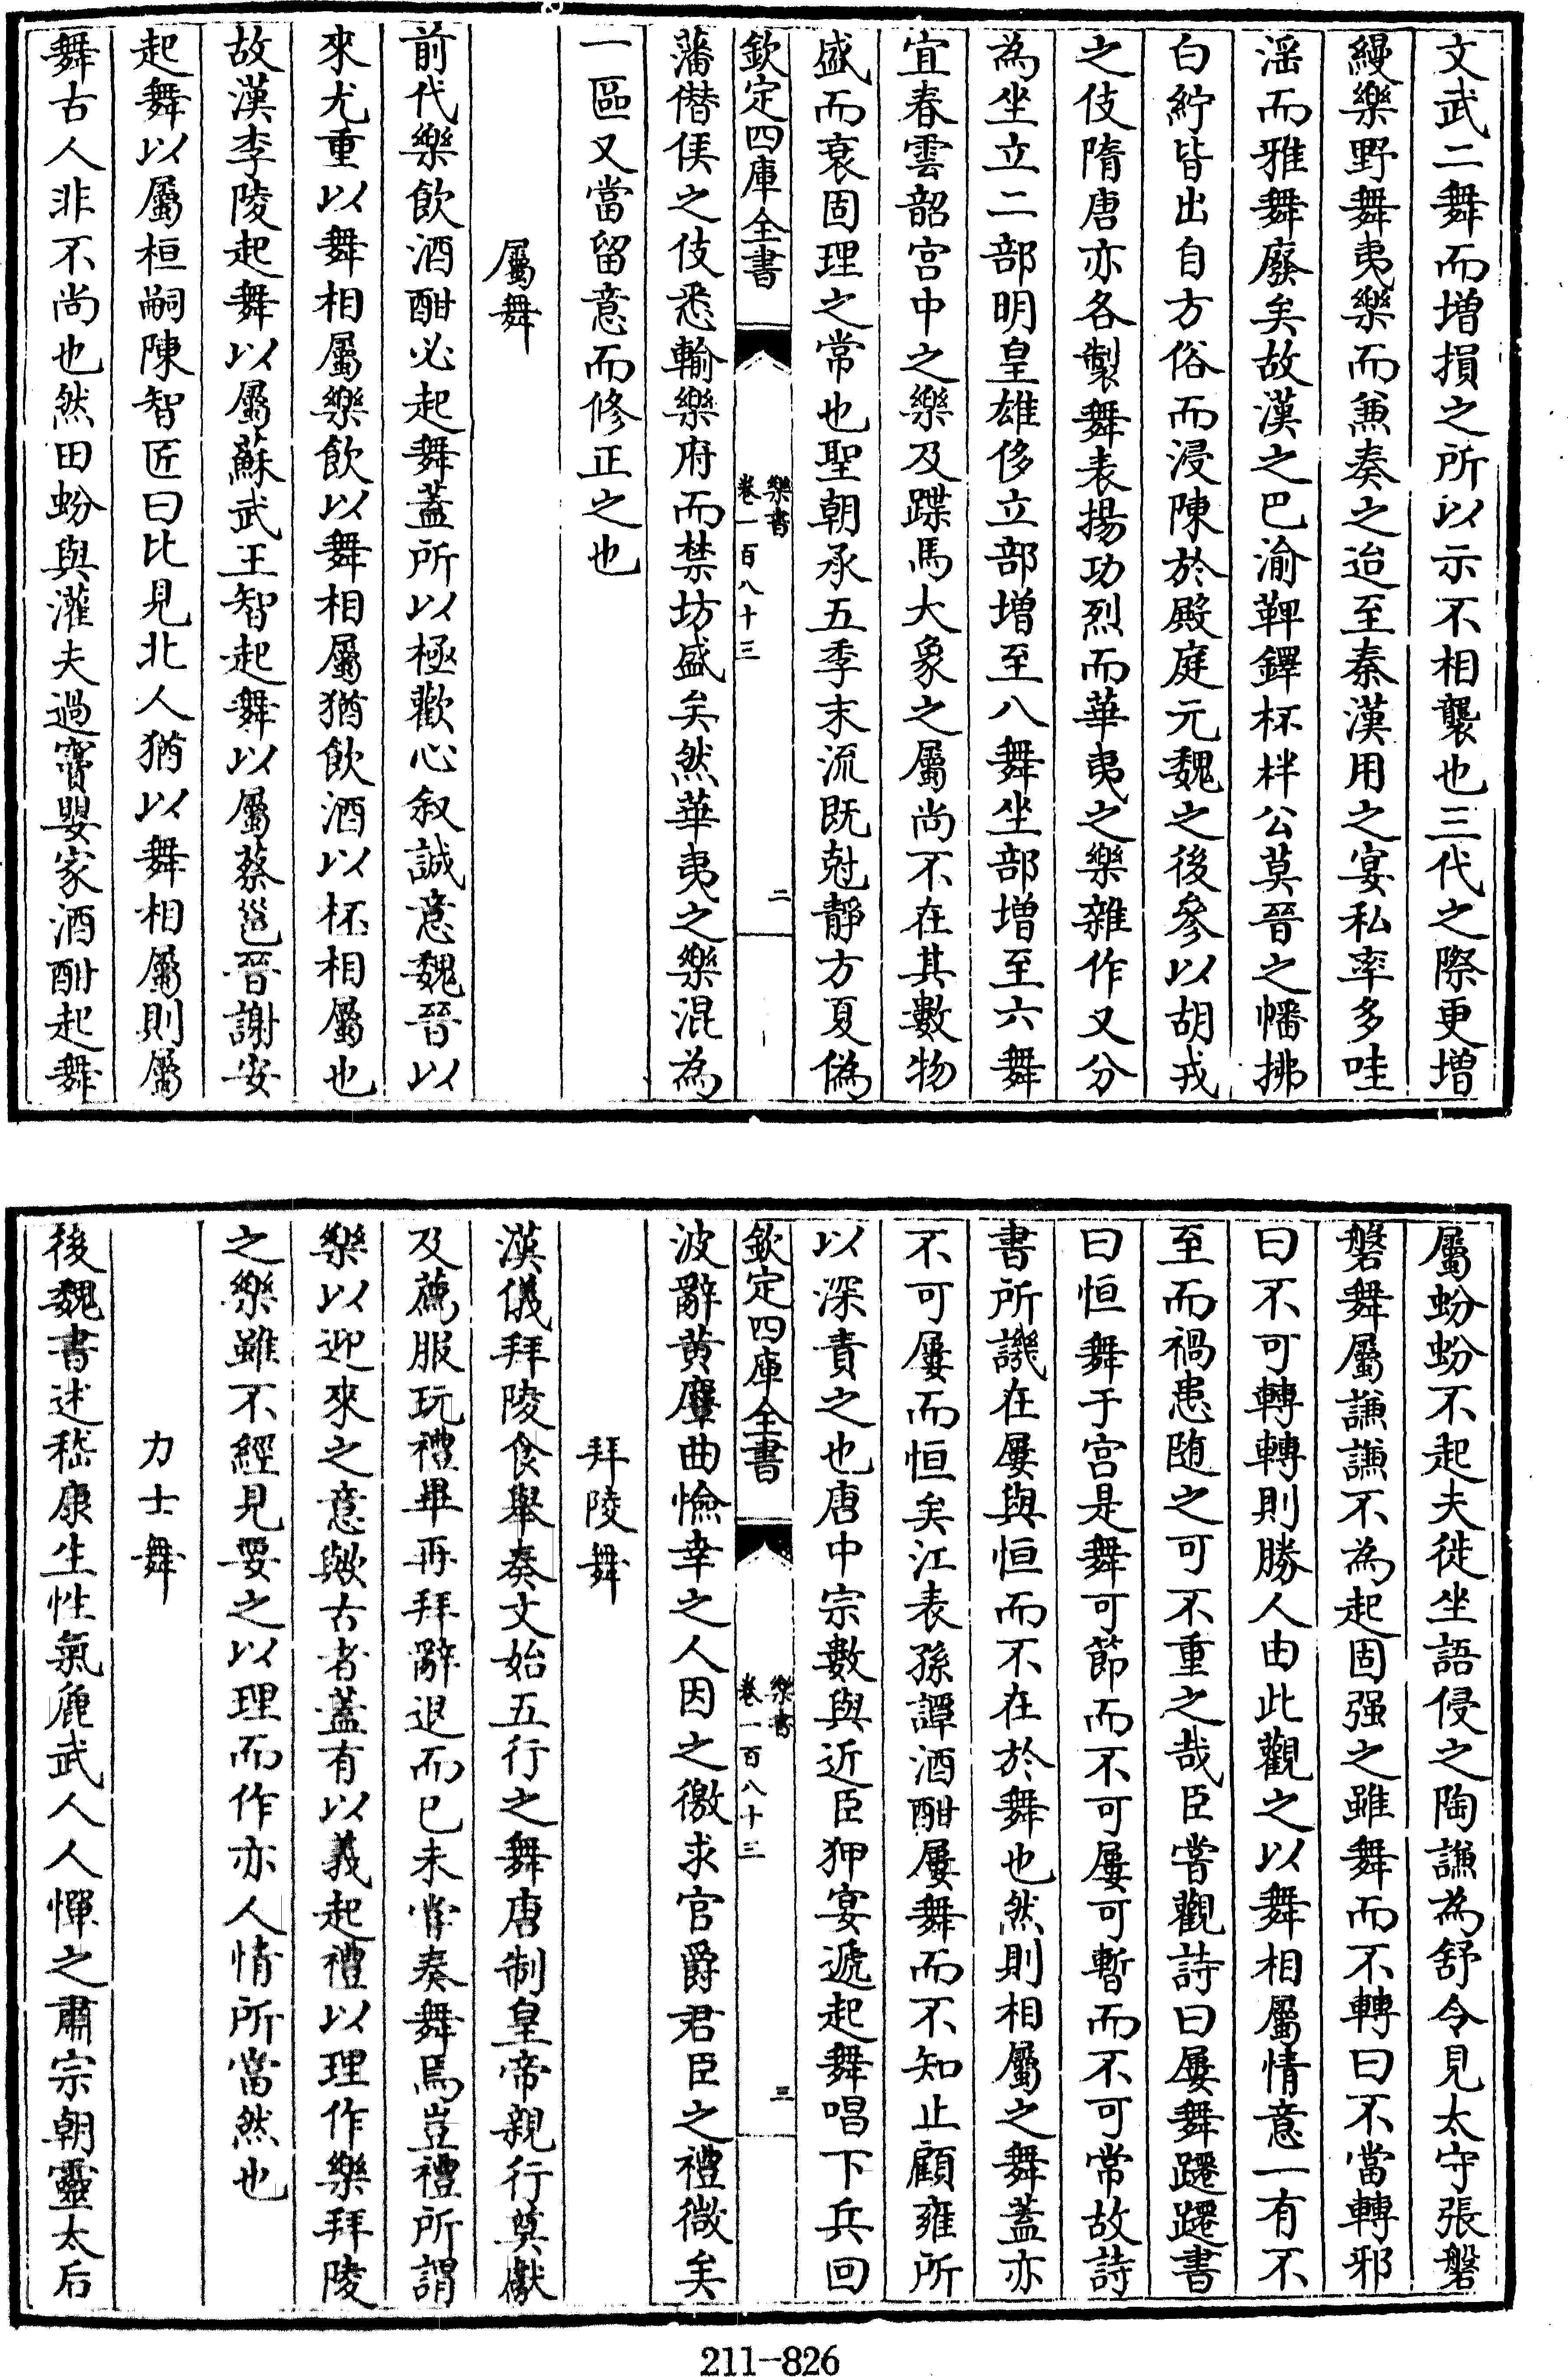 文武二舞而增損之所以示不相襲也三代之際更增
縵樂野舞夷樂而兼奏之迨至秦漢用之宴私率多哇
淫而雅舞廢矣故漢之巴渝鞞鐸杯柈公莫晉之幡拂
白紵皆出自方俗而浸陳於殿庭元魏之後參以胡戎
之伎隋唐亦各製舞表揚功烈而華夷之樂雜作又分
為坐立二部明皇雄侈立部增至八舞坐部增至六舞
宜春雲韶宮中之樂及蹀馬大象之屬尚不在其數物
盛而衰固理之常也聖朝承五季末流既尅靜方夏偽
欽定四庫全書
樂書
卷一百八十三
二
藩僭侯之伎悉輸樂府而禁坊盛矣然華夷之樂混為
一區又當留意而修正之也
屬舞
前代樂飲酒酣必起舞蓋所以極歡心叙誠意魏晉以
來尤重以舞相屬樂飲以舞相屬猶飲酒以杯相屬也
故漢李陵起舞以屬蘇武王智起舞以屬蔡邕晉謝安
起舞以屬桓嗣陳智匠曰比見北人猶以舞相屬則屬
舞古人非不尚也然田蚡與灌夫過竇嬰家酒酣起舞
屬蚡蚡不起夫徙坐語侵之陶謙為舒令見太守張磐
磐舞屬謙謙不為起固强之雖舞而不轉曰不當轉邪
曰不可轉轉則勝人由此觀之以舞相屬情意一有不
至而禍患随之可不重之哉臣嘗觀詩曰屢舞躚躚書
曰恒舞于宮是舞可節而不可屢可暫而不可常故詩
書所譏在屢與恒而不在於舞也然則相屬之舞蓋亦
不可屢而恒矣江表孫譚酒酣屢舞而不知止顧雍所
以深責之也唐中宗數與近臣狎宴遞起舞唱下兵回
欽定四庫全書
樂書
卷一百八十三
三
波辭黄麞曲憸幸之人因之徼求官爵君臣之禮微矣
拜陵舞
漢儀拜陵食舉奏文始五行之舞唐制皇帝親行奠獻
及薦服玩禮畢再拜辭退而已未嘗奏舞焉豈禮所謂
樂以迎來之意歟古者蓋有以義起禮以理作樂拜陵
之樂雖不經見要之以理而作亦人情所當然也
力士舞
後魏書述嵇康生性氣麁武人人憚之肅宗朝靈太后
211-826